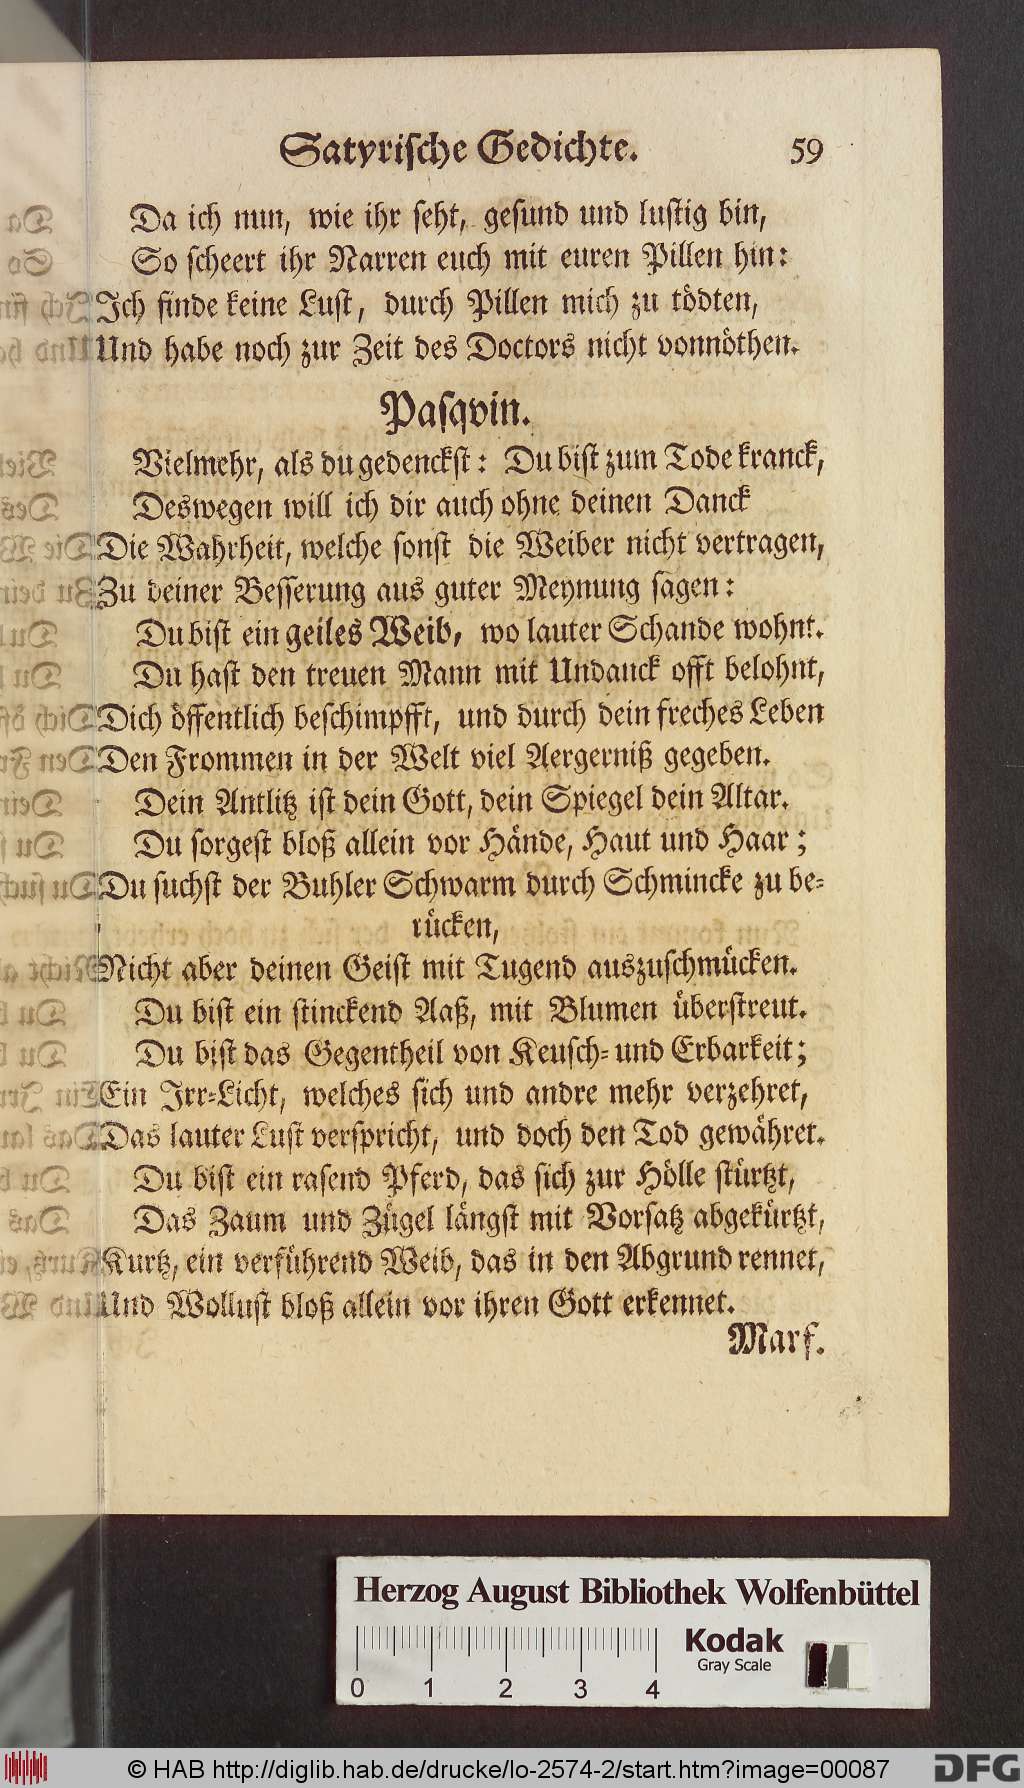 Satyrische Gedichte. 59
Da ich nun, wie ihr seht, gesund und lustig bin,
So scheert ihr Narren euch mit euren Pillen hin:
Ich finde keine Lust, durch Pillen mich zu tödten,
Und habe noch zur Zeit des Doctors nicht vonnöthen.
Pasqvin.
Vielmehr, als du gedenckst: Du bist zum Tode kranck,
Deswegen will ich dir auch ohne deinen Danck
Die Wahrheit, welche sonst die Weiber nicht vertragen,
Zu deiner Besserung aus guter Meynung sagen:
Du bist ein geiles Weib, wo lauter Schande wohnt.
Du hast den treuen Mann mit Undanck offt belohnt,
Dich öffentlich beschimpfft, und durch dein freches Leben
Den Frommen in der Welt viel Aergerniß gegeben.
Dein Antlitz ist dein Gott, dein Spiegel dein Altar.
Du sorgest bloß allein vor Hände, Haut und Haar;
Du suchst der Buhler Schwarm durch Schmincke zu be-
rücken,
Nicht aber deinen Geist mit Tugend auszuschmücken.
Du bist ein stinckend Aaß, mit Blumen überstreut.
Du bist das Gegentheil von Keusch- und Erbarkeit;
Ein Irr-Licht, welches sich und andre mehr verzehret,
Das lauter Lust verspricht, und doch den Tod gewähret.
Du bist ein rasend Pferd, das sich zur Hölle stürtzt,
Das Zaum und Zügel längst mit Vorsatz abgekürtzt,
Kurtz, ein verführend Weib, das in den Abgrund rennet,
Und Wollust bloß allein vor ihren Gott erkennet.
Marf.
Herzog August Bibliothek Wolfenbüttel
Kodak
Gray Scale
0 1 2 3 4
© HAB http://diglib.hab.de/drucke/lo-2574-2/start.htm?image=00087
DFG